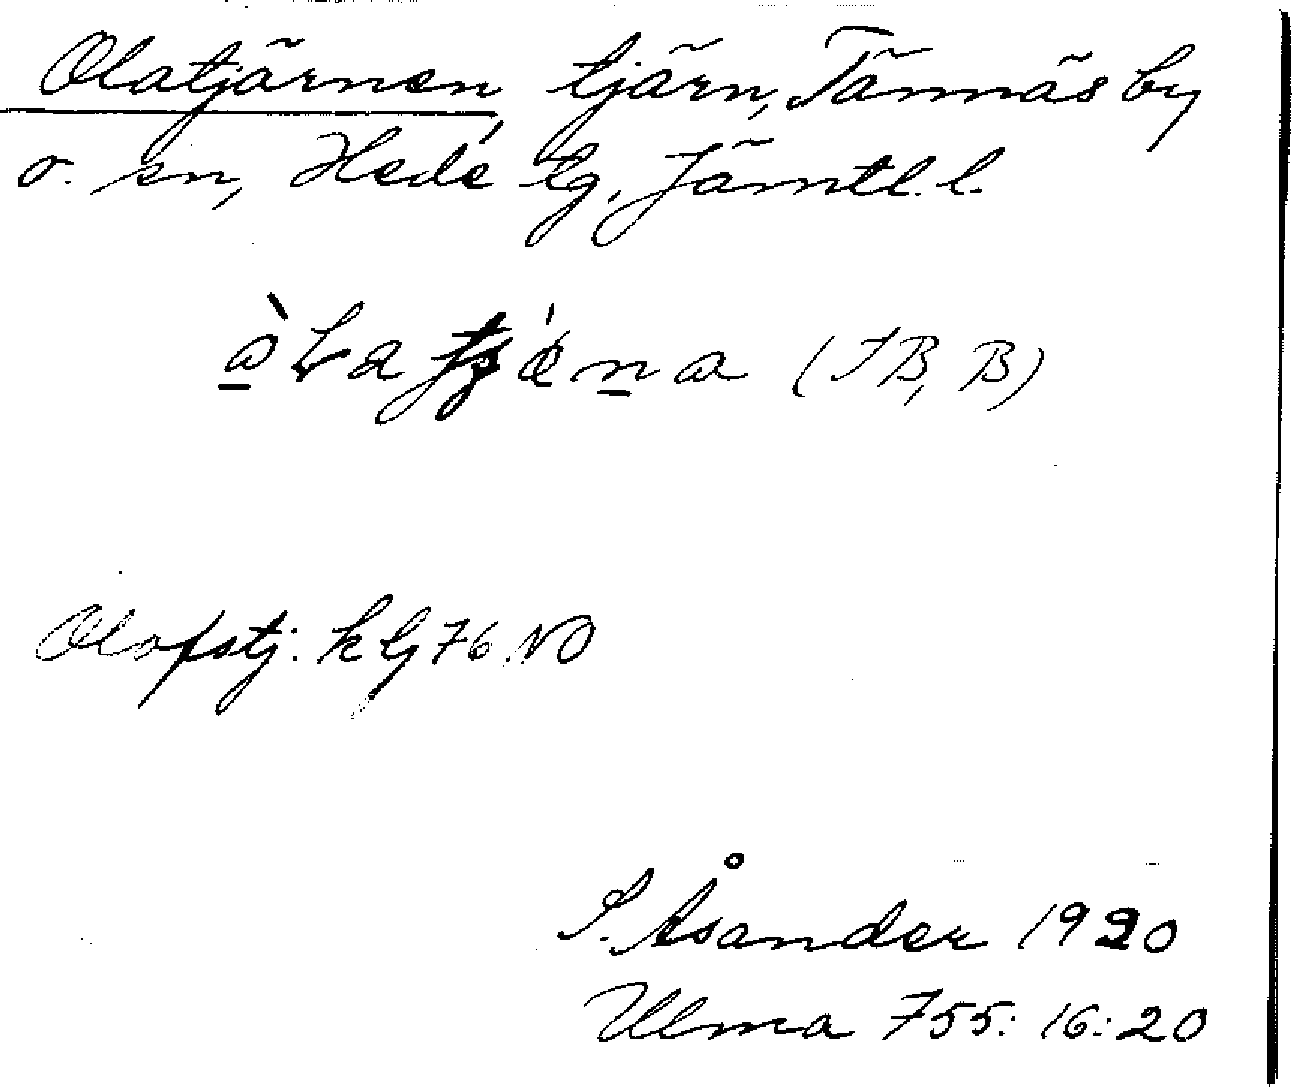 Olatjärnen tjärn, Tännäs by
o. sn, Hede tg, Jämtl. l.
(JB, B)
Olofstj: kbg 76 NO
S. Åsander 1920
Ulma 755: 16: 20